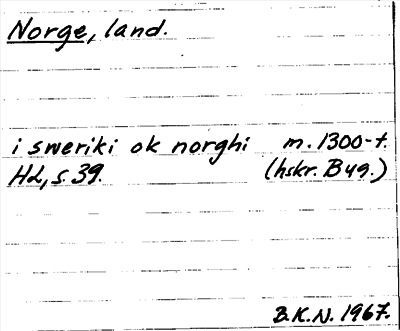 Norge, land.
i sweriki ok norghi m. 1300-t.
HL, s. 39. (hskr. Bug.)
B.K.N. 1967.